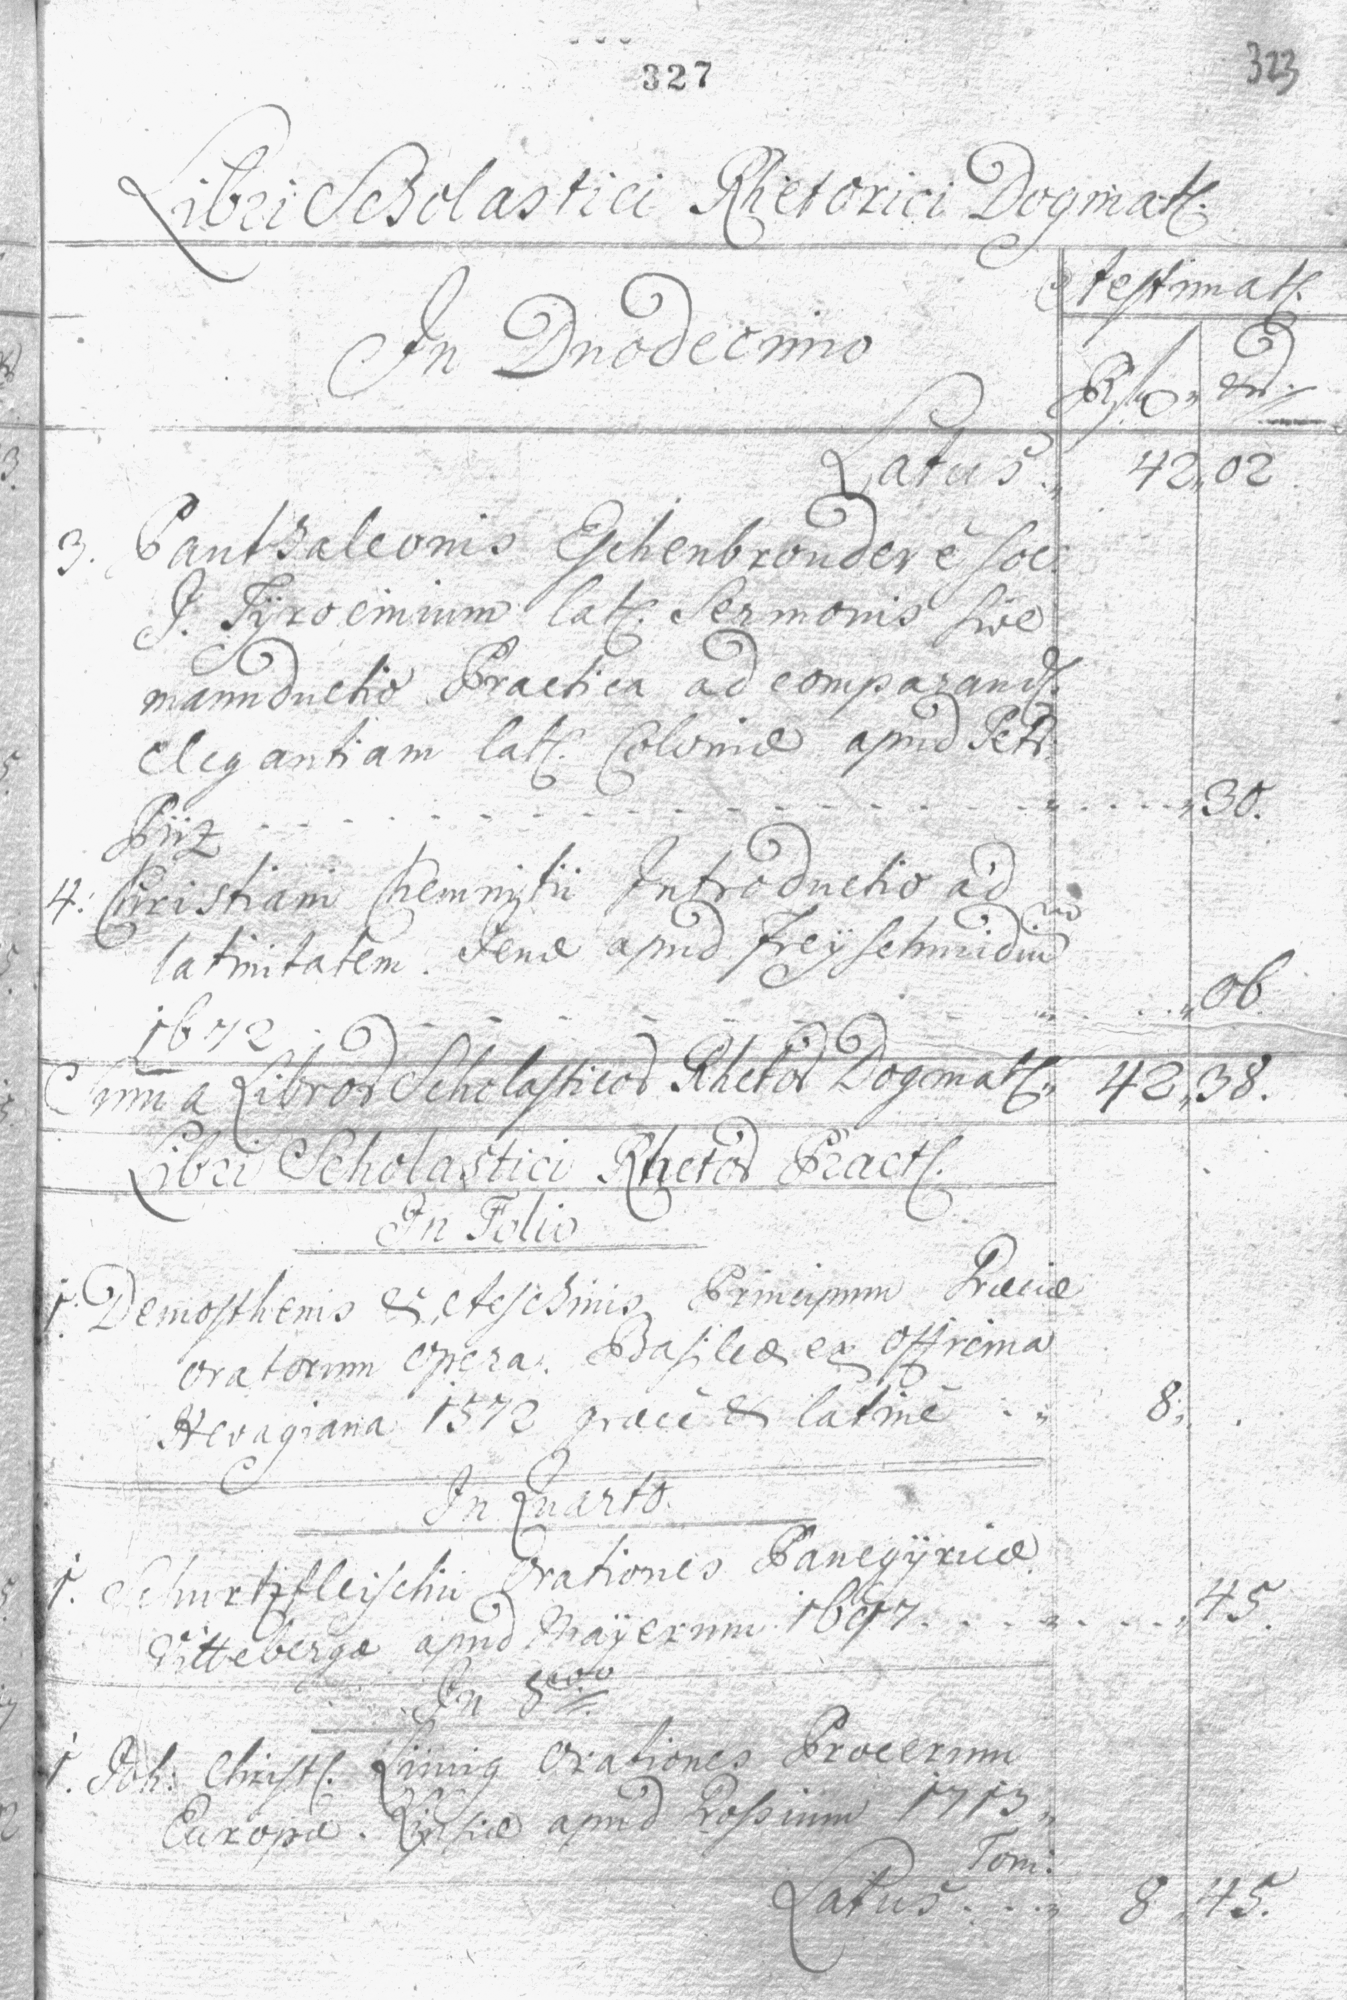 327
323
Libri Scholastici Rhetorici Dogmat:
Æstimat:
In Duodecimo
Latus „ 42„02
3. Panthaleonis Eschenbrouder è Soc:
J. Tÿrocinium lat: Sermonis sive
manuductio Practica ad comparand:
elegantiam lat: Coloniæ apud Petr:
Pütz - - - - - „ - - - „30.
4. Christiani Chemnitii Introductio ad
latinitatem. Jenæ apud Freyschmidium
1672 - - - - „ - - - „06.
Summa Libror Scholasticor Rhetor Dogmat: „ 42„38.
Libri Scholastici Rhetor Pract:
In Folio
1. Demosthenis & Æeschinis Principum Græciæ
oratorum opera. Basileæ ex officina
Hervagiana 1572 græcè & latinè - „ 8„ .
In Quarto.
1. Schurtzfleischii Orationes Panegÿricæ
Vittebergæ apud Maÿerum 1697. - - „ - - - „45.
In 8vo
1. Joh: Christ: Lünig Orationes Procerum
Europæ. Lipsiæ apud 1713„
Tom:
Latus - - - „ 8„45.